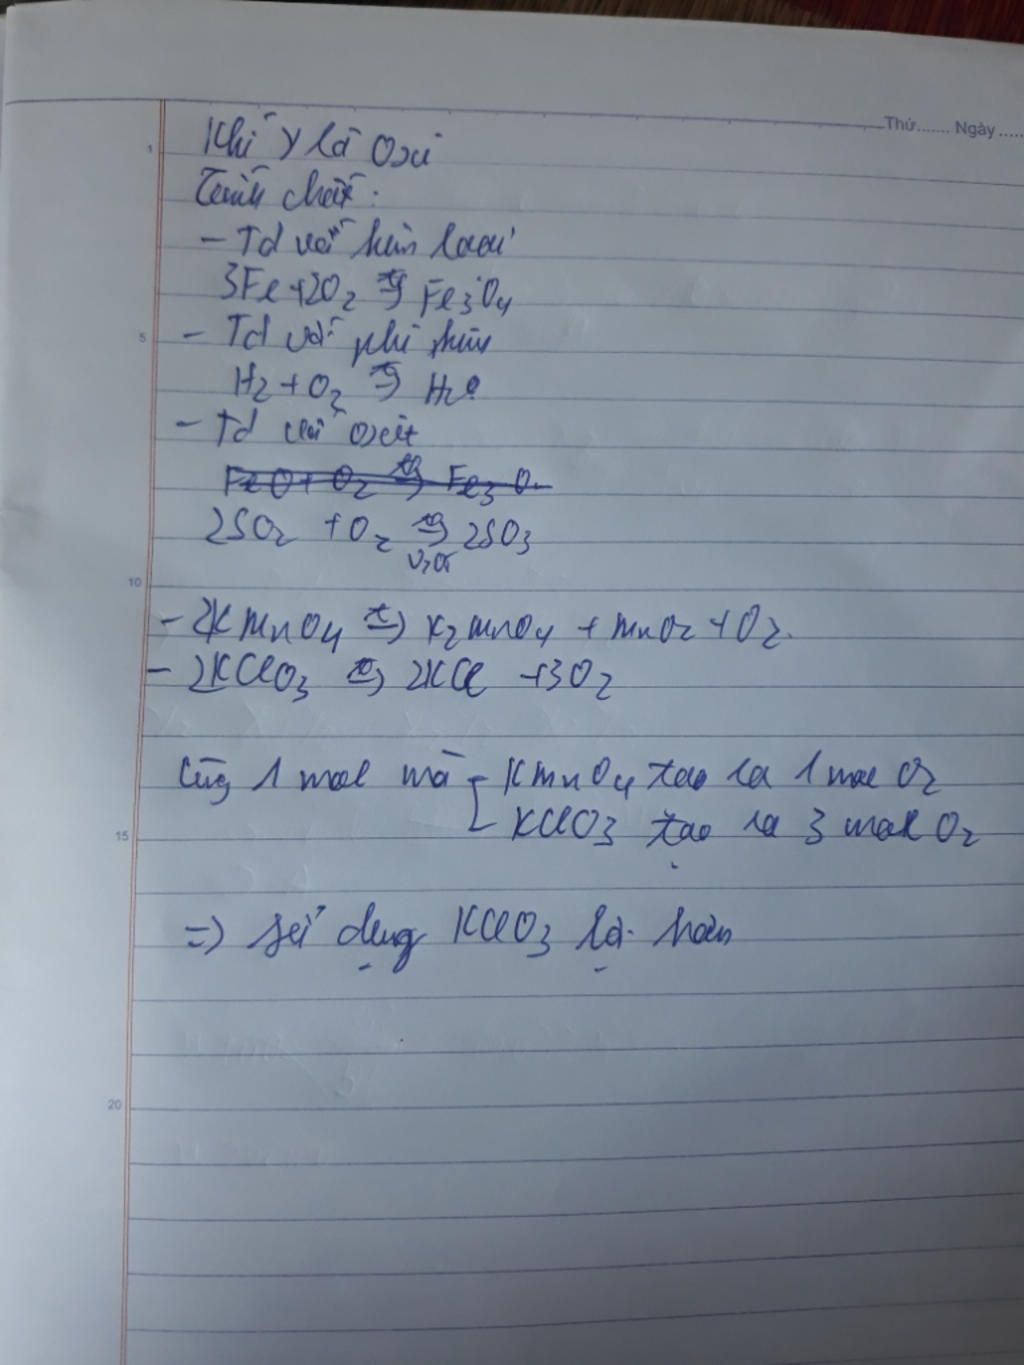 Thứ....... Ngày .....
Khí Y là Oxi
Tính chất:
- Td với kim loại
3Fe + 2O2 t°→ Fe3O4
- Td với phi kim
H2 + O2 t°→ H2O
- Td với oxit
FeO + O2 t°→ Fe3O
2SO2 + O2 t°→ 2SO3
V2O5
- 2KMnO4 t°→ K2MnO4 + MnO2 + O2.
- 2KClO3 t°→ 2KCl + 3O2
Cùng 1 mol mà KMnO4 tạo ra 1 mol O2
KClO3 tạo ra 3 mol O2
=> sử dụng KClO3 lợi hơn
1
5
10
15
20